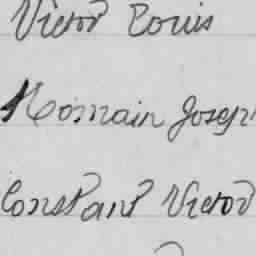 Victor Louis
Romain Joseph
Constant Victor